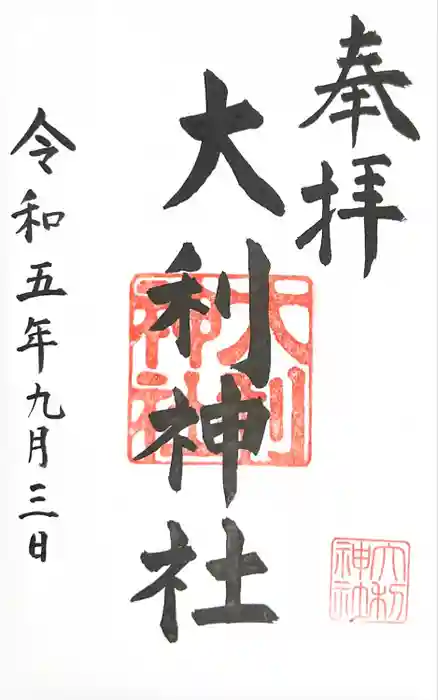 奉拝
大利神社
令和五年九月三日
大利神社
大利神社